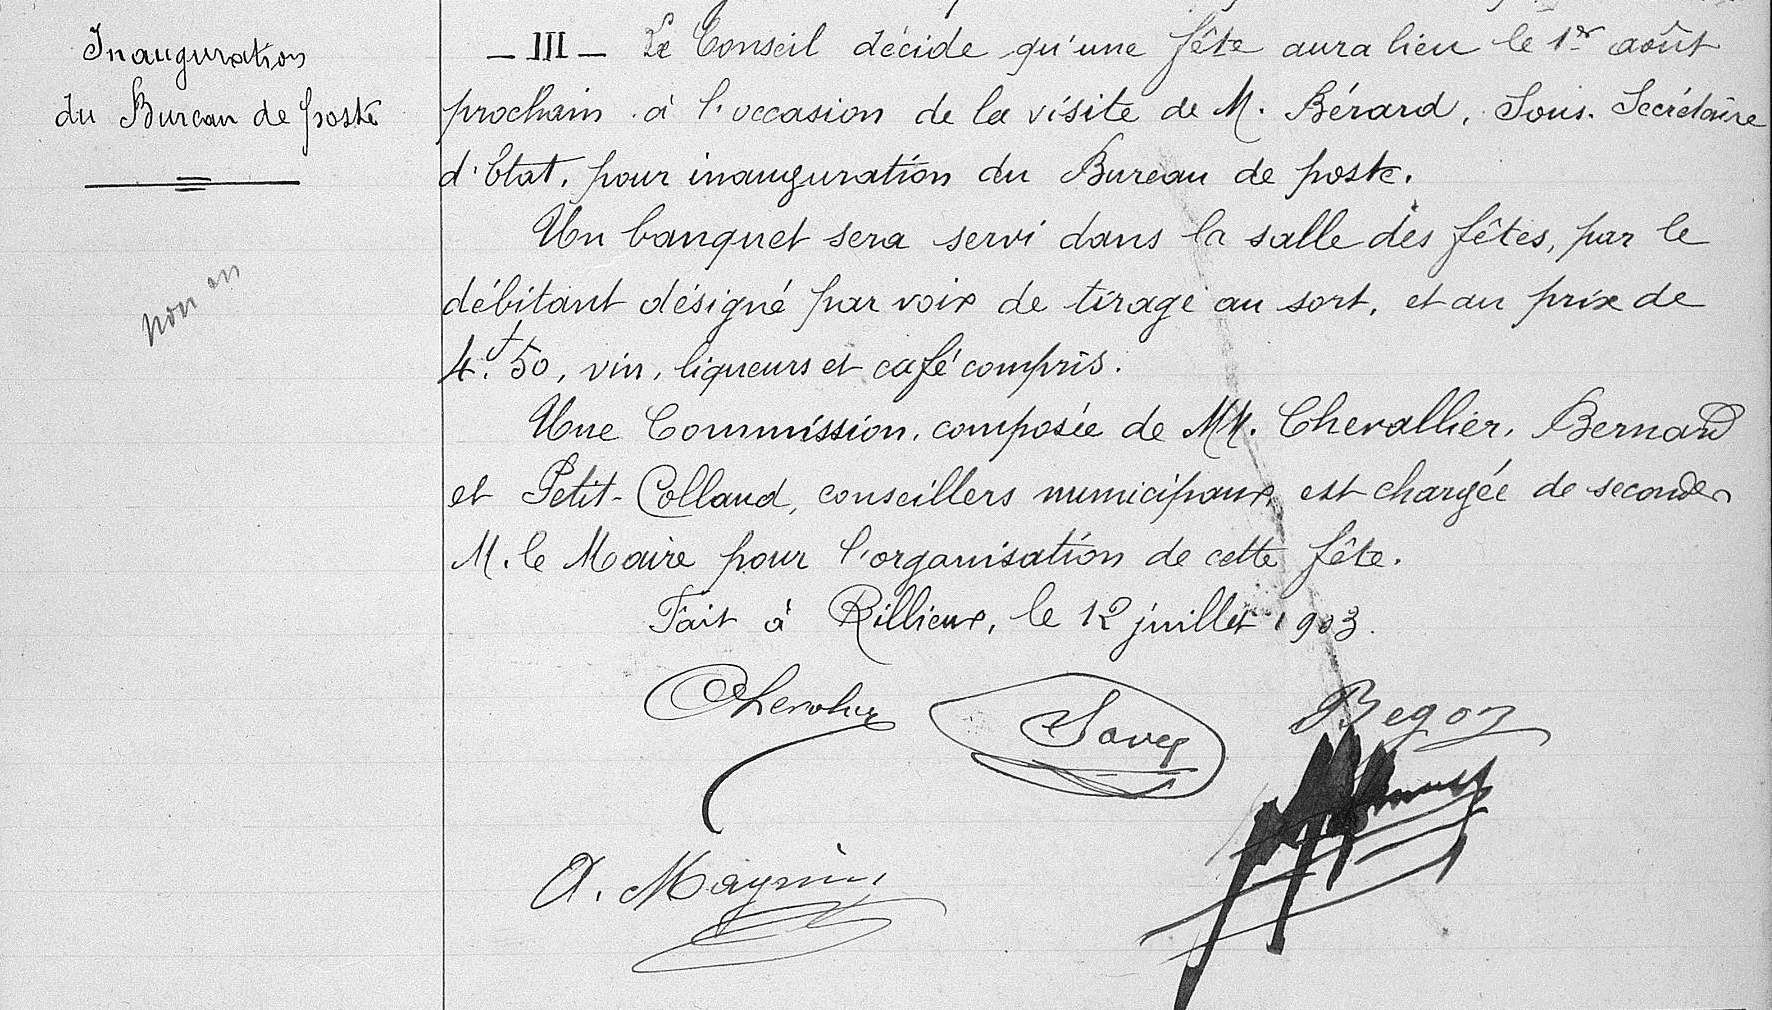 Inauguration
du Bureau de poste
non en
- III - Le Conseil décide qu'une fête aura lieu le 1er août
prochain à l'occasion de la visite de M. Bérard, Sous-Secrétaire
d'Etat, pour inauguration du Bureau de poste.
Un banquet sera servi dans la salle des fêtes, par le
débitant désigné par voie de tirage au sort, et au prix de
4.f 50, vin, liqueurs et café compris.
Une Commission, composée de MM. Chevallier, Bernard
et Petit-Colland, conseillers municipaux, est chargée de seconder
M. le Maire pour l'organisation de cette fête.
Fait à Rillieux, le 12 juillet 1903.
Begoz
A.